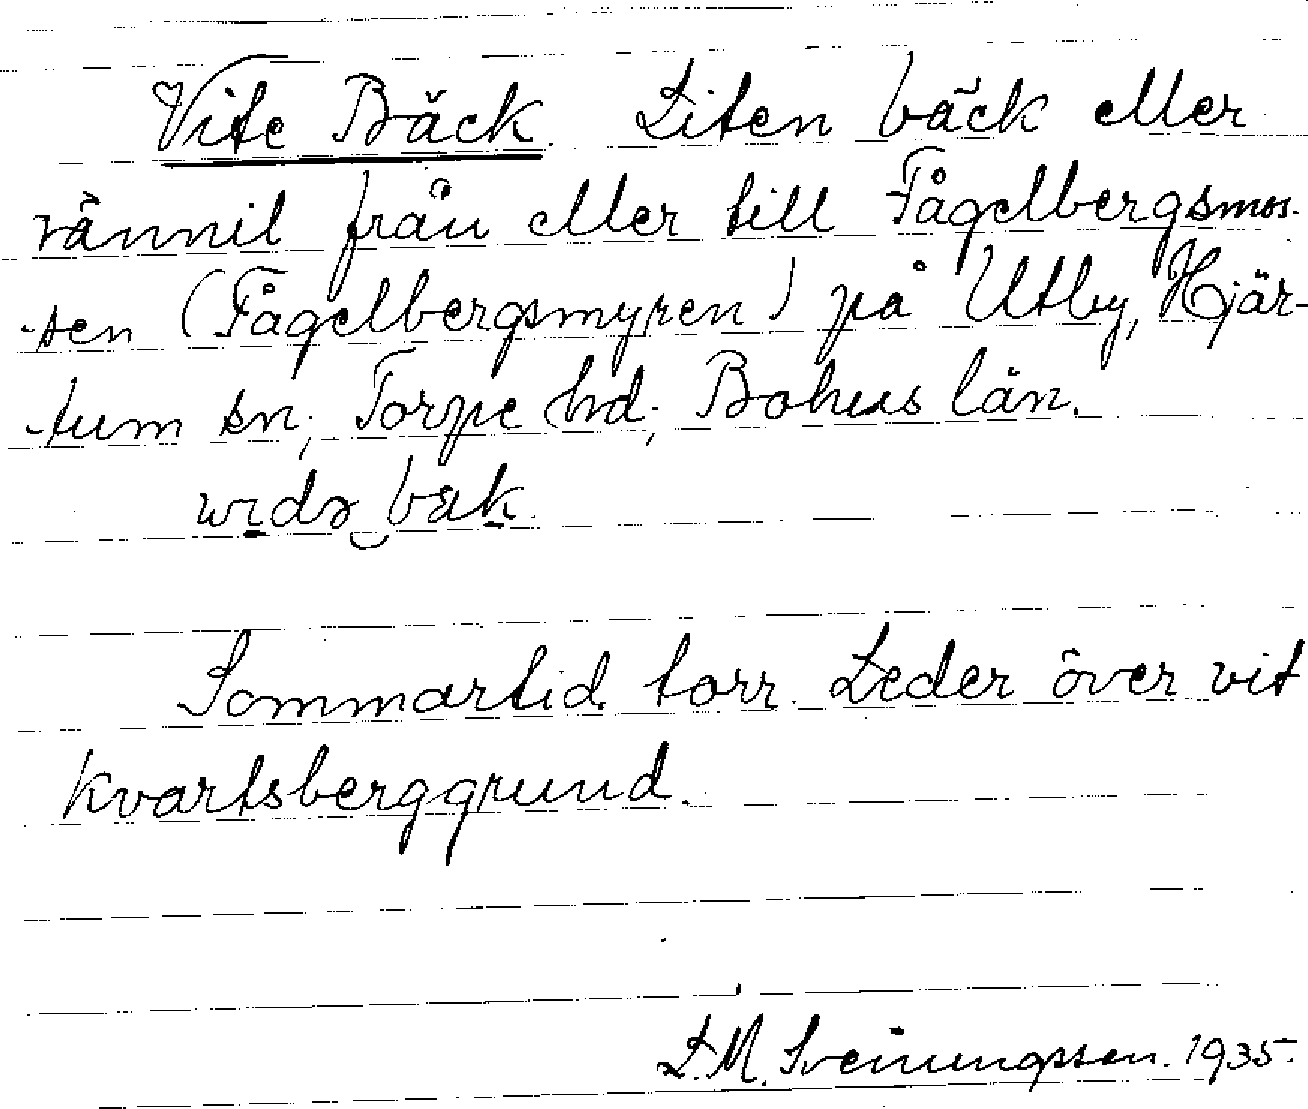 Vite Bäck. Liten bäck eller
rännil från eller till Fågelbergsmos-
sen (Fågelbergsmyren) på Utby, Hjär-
tum sn, Torpe hd, Bohus län.
Sommartid torr. Leder över vit
kvartsberggrund.
L. M. Sveinungssen. 1935.